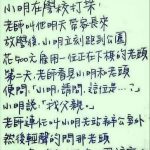 小明在學校打架,
老師叫他明天帶家長來
放學後,小明立刻跑到公園
花400元雇用一位正在下棋的老頭
第二天,老師看見小明和老頭
便問:「小明,請問,這位是…?」
小明說:「我父親。」
老師連忙叫小明先站在辦公室外
然後輕聲的問那老頭